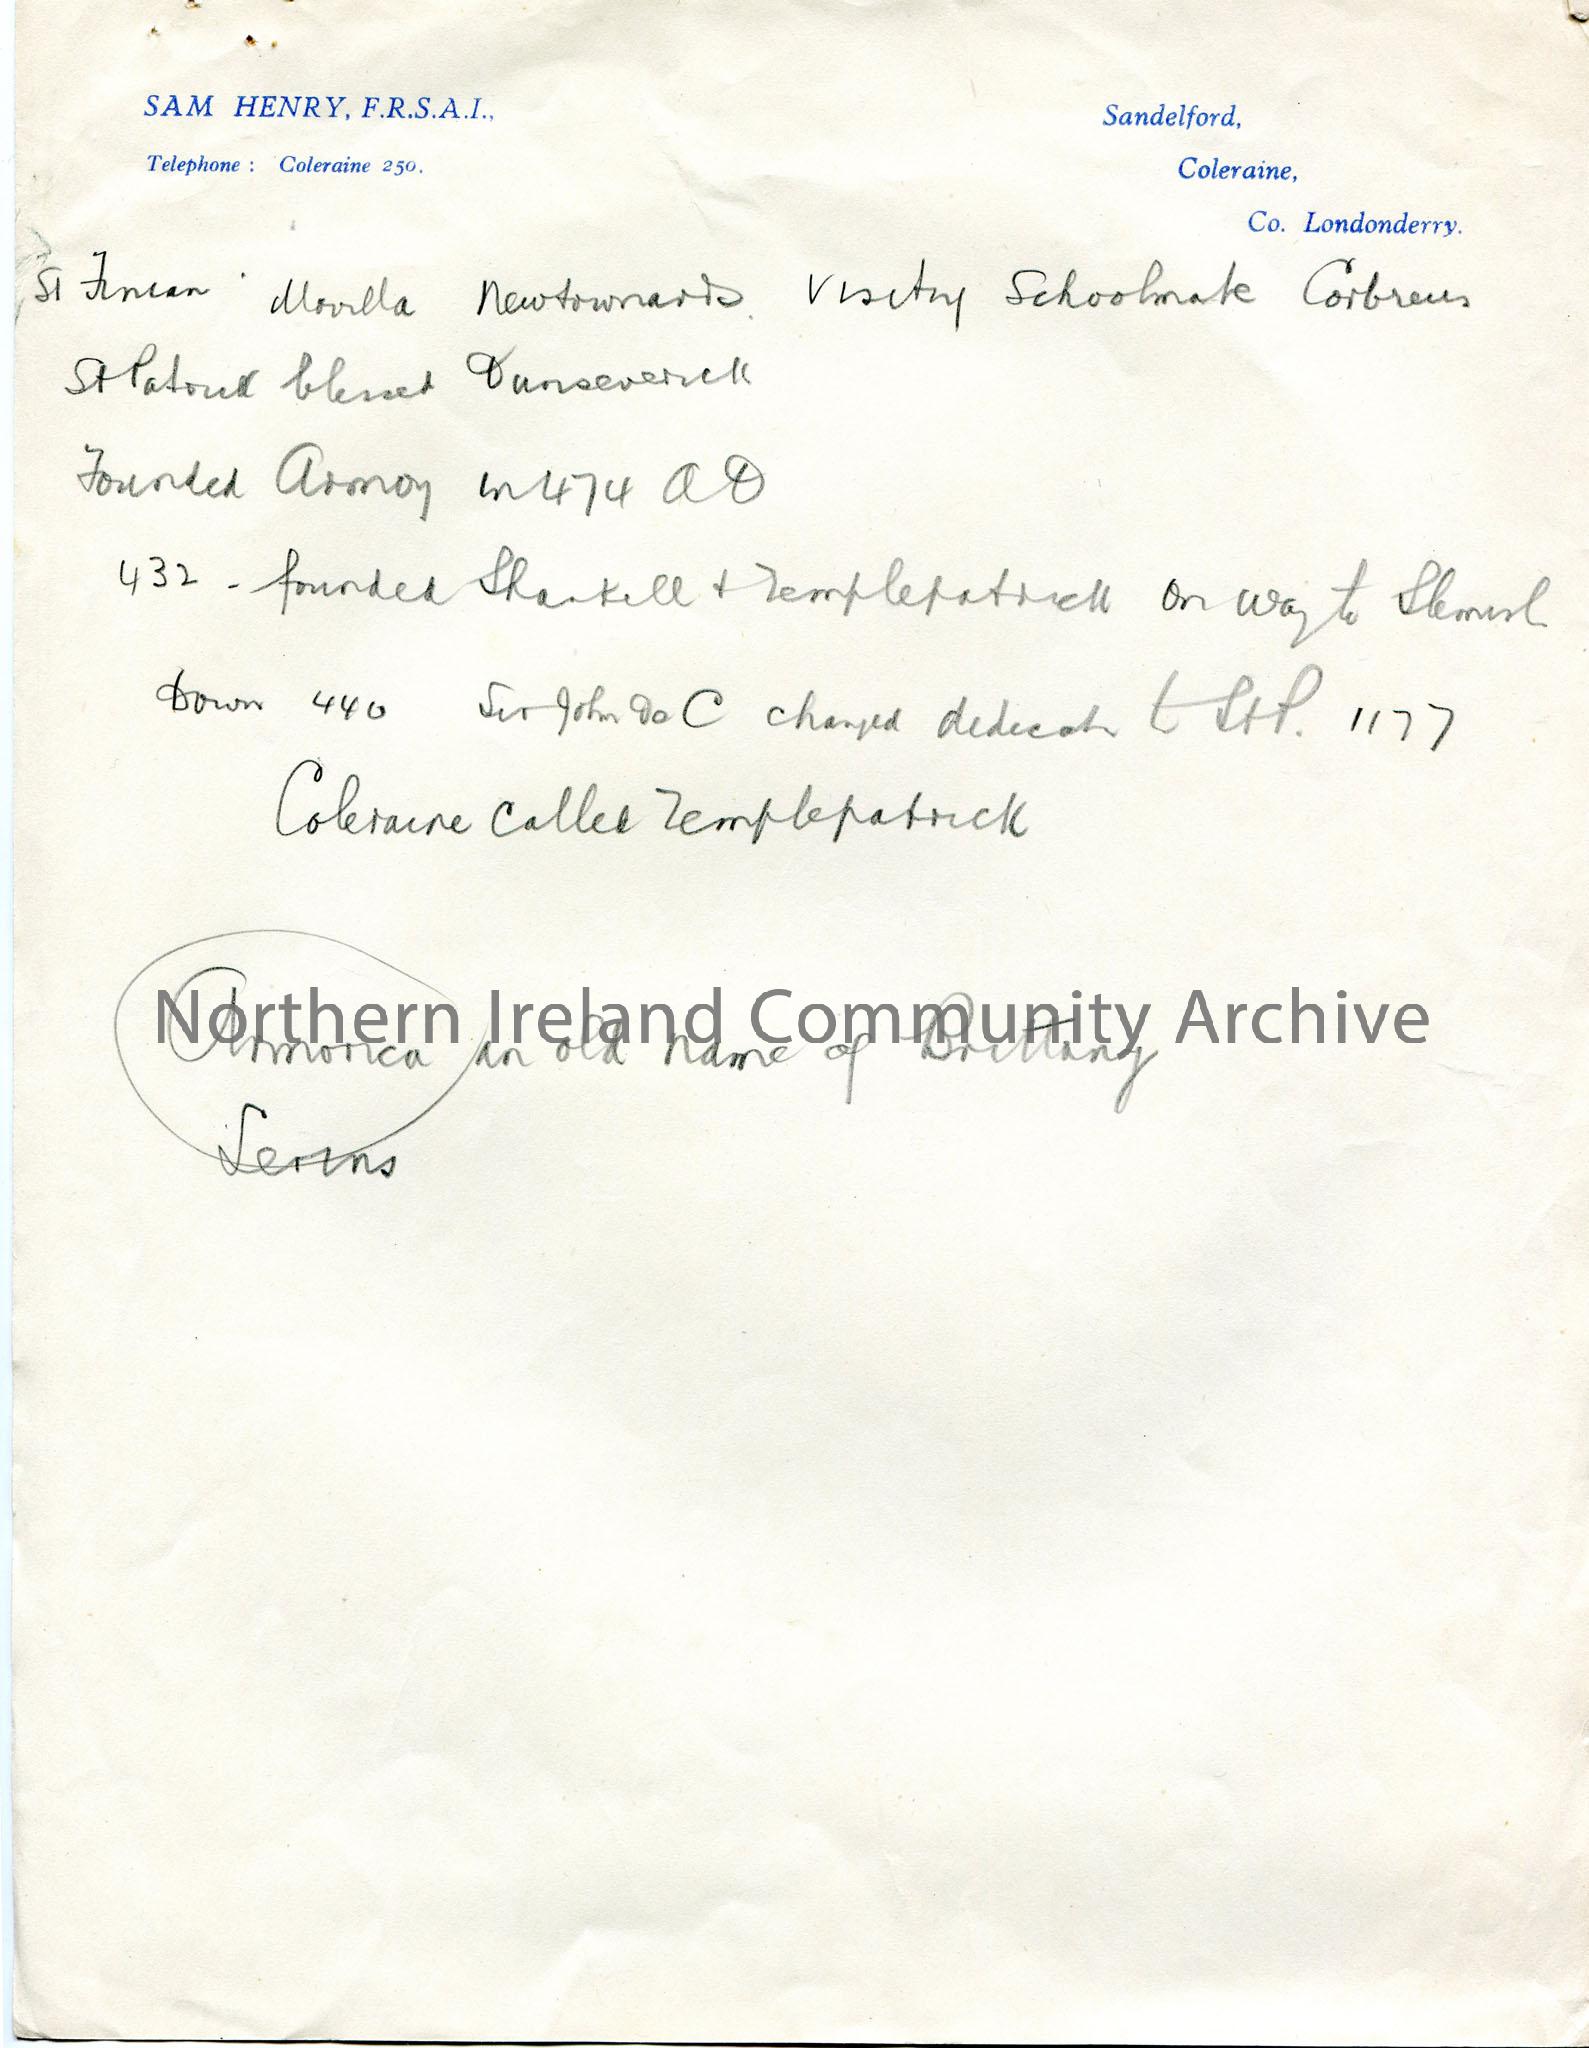 SAM HENRY, F.R.S.A.I.,
Telephone : Coleraine 250.
Sandelford,
Coleraine,
Co. Londonderry.
St Finian Movilla Newtownards. Visiting Schoolmate Coibreus
St Patrick blessed Dunseverick
Founded Armoy in 474 AD
432 - founded Shankill + Templepatrick on way to Slemish
Down 440 Sir John De C changed dedicatn to St P. 1177
Coleraine called Templepatrick
Northern Ireland Community Archive
Armorica an old name of Brittany
Lerins